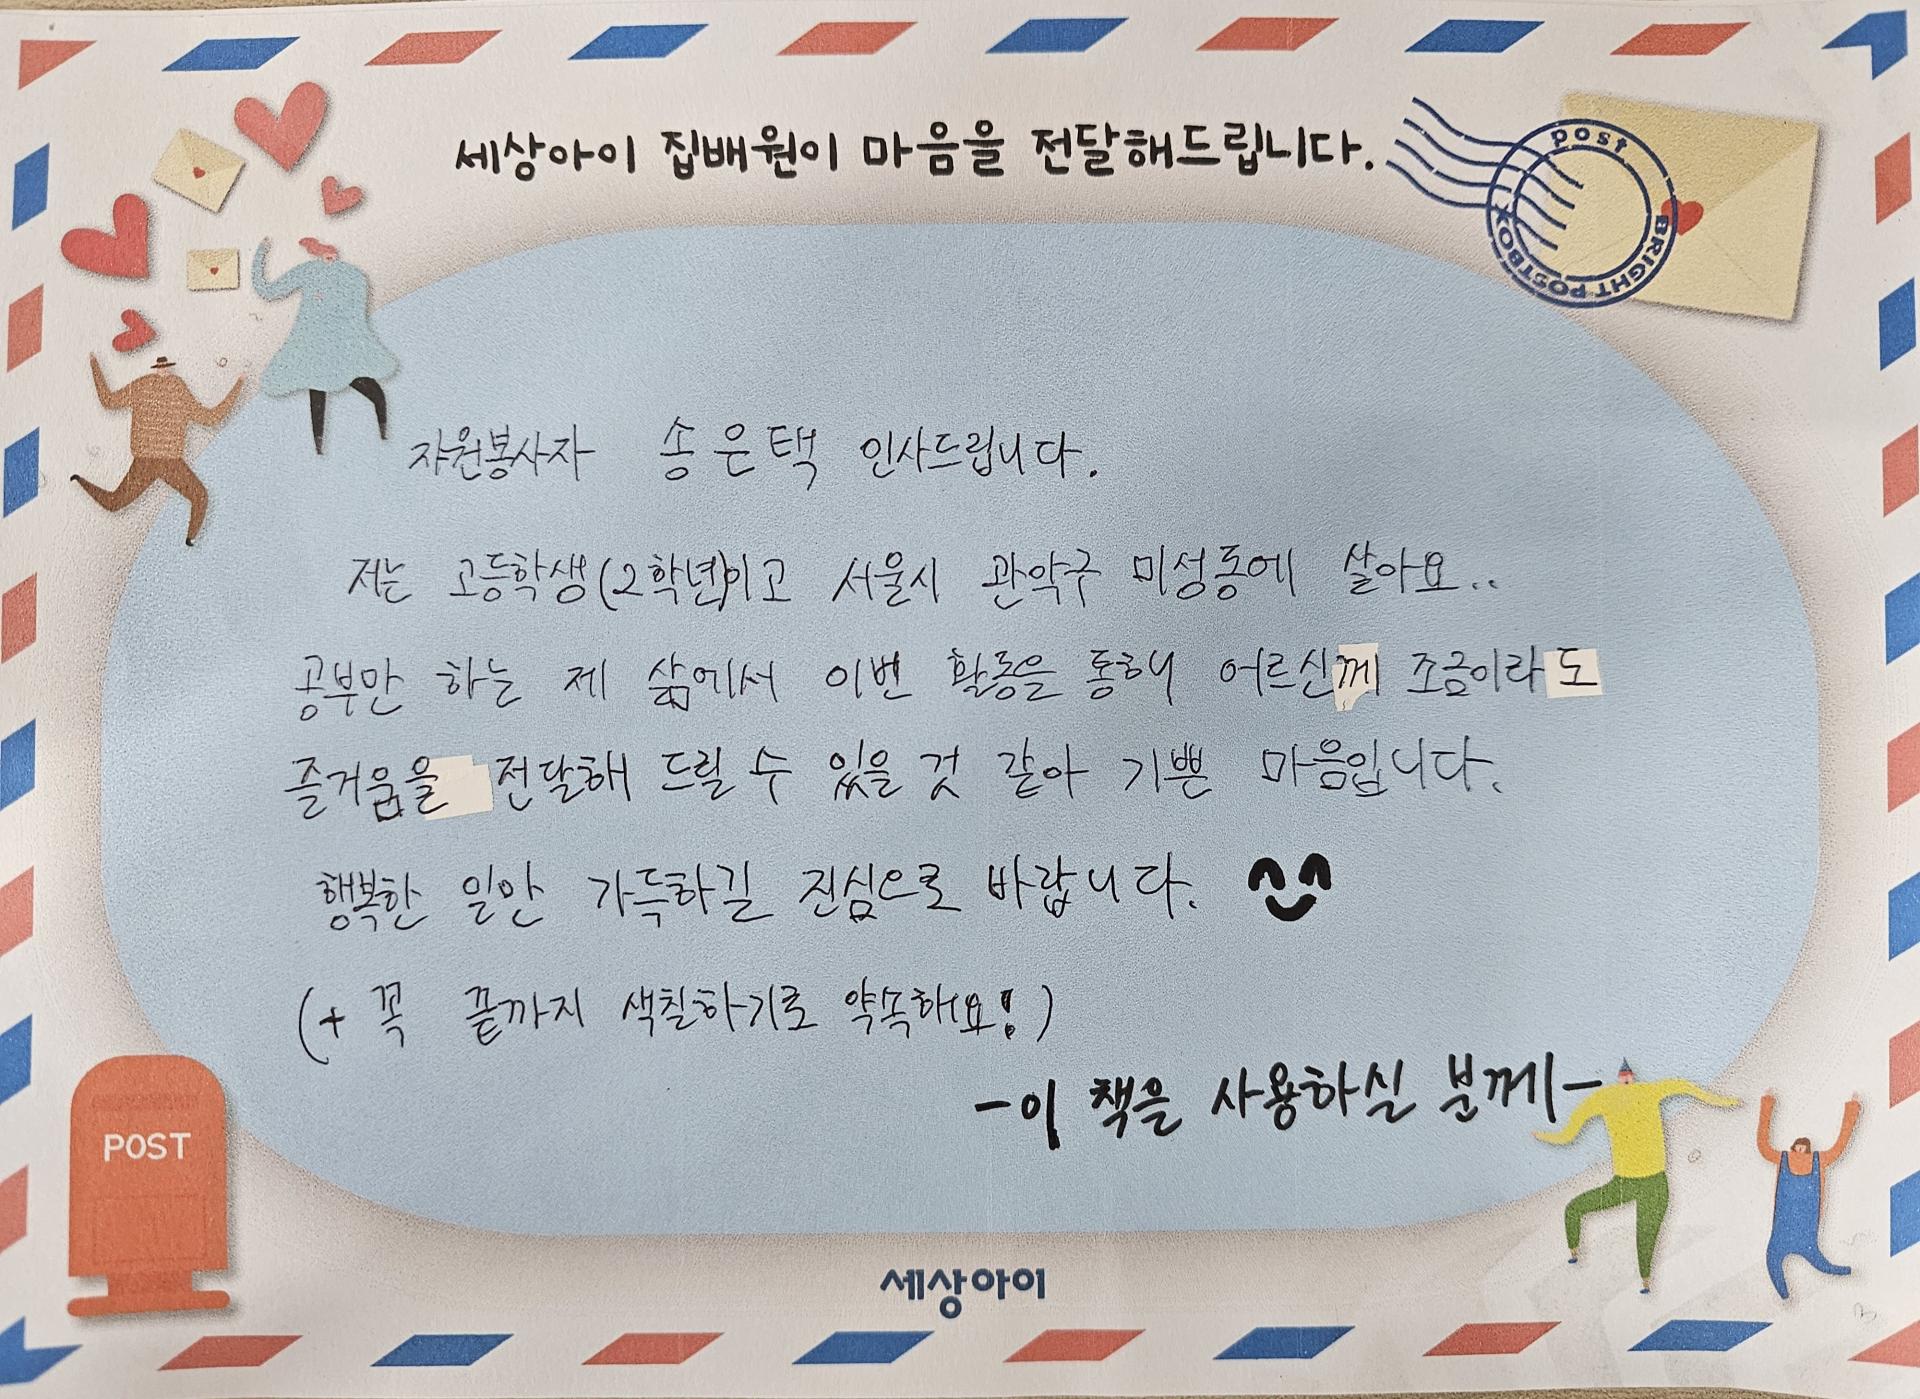 세상아이 집배원이 마음을 전달해드립니다.
post
BRIGHT POSTBOX
자원봉사자 송은택 인사드립니다.
저는 고등학생(2학년)이고 서울시 관악구 미성동에 살아요..
공부만 하는 제 삶에서 이번 활동을 통해 어르신께 조금이라도
즐거움을 전달해 드릴 수 있을 것 같아 기쁜 마음입니다.
행복한 일만 가득하길 진심으로 바랍니다.
(+ 꼭 끝까지 색칠하기로 약속해요!)
-이 책을 사용하실 분께-
POST
세상아이